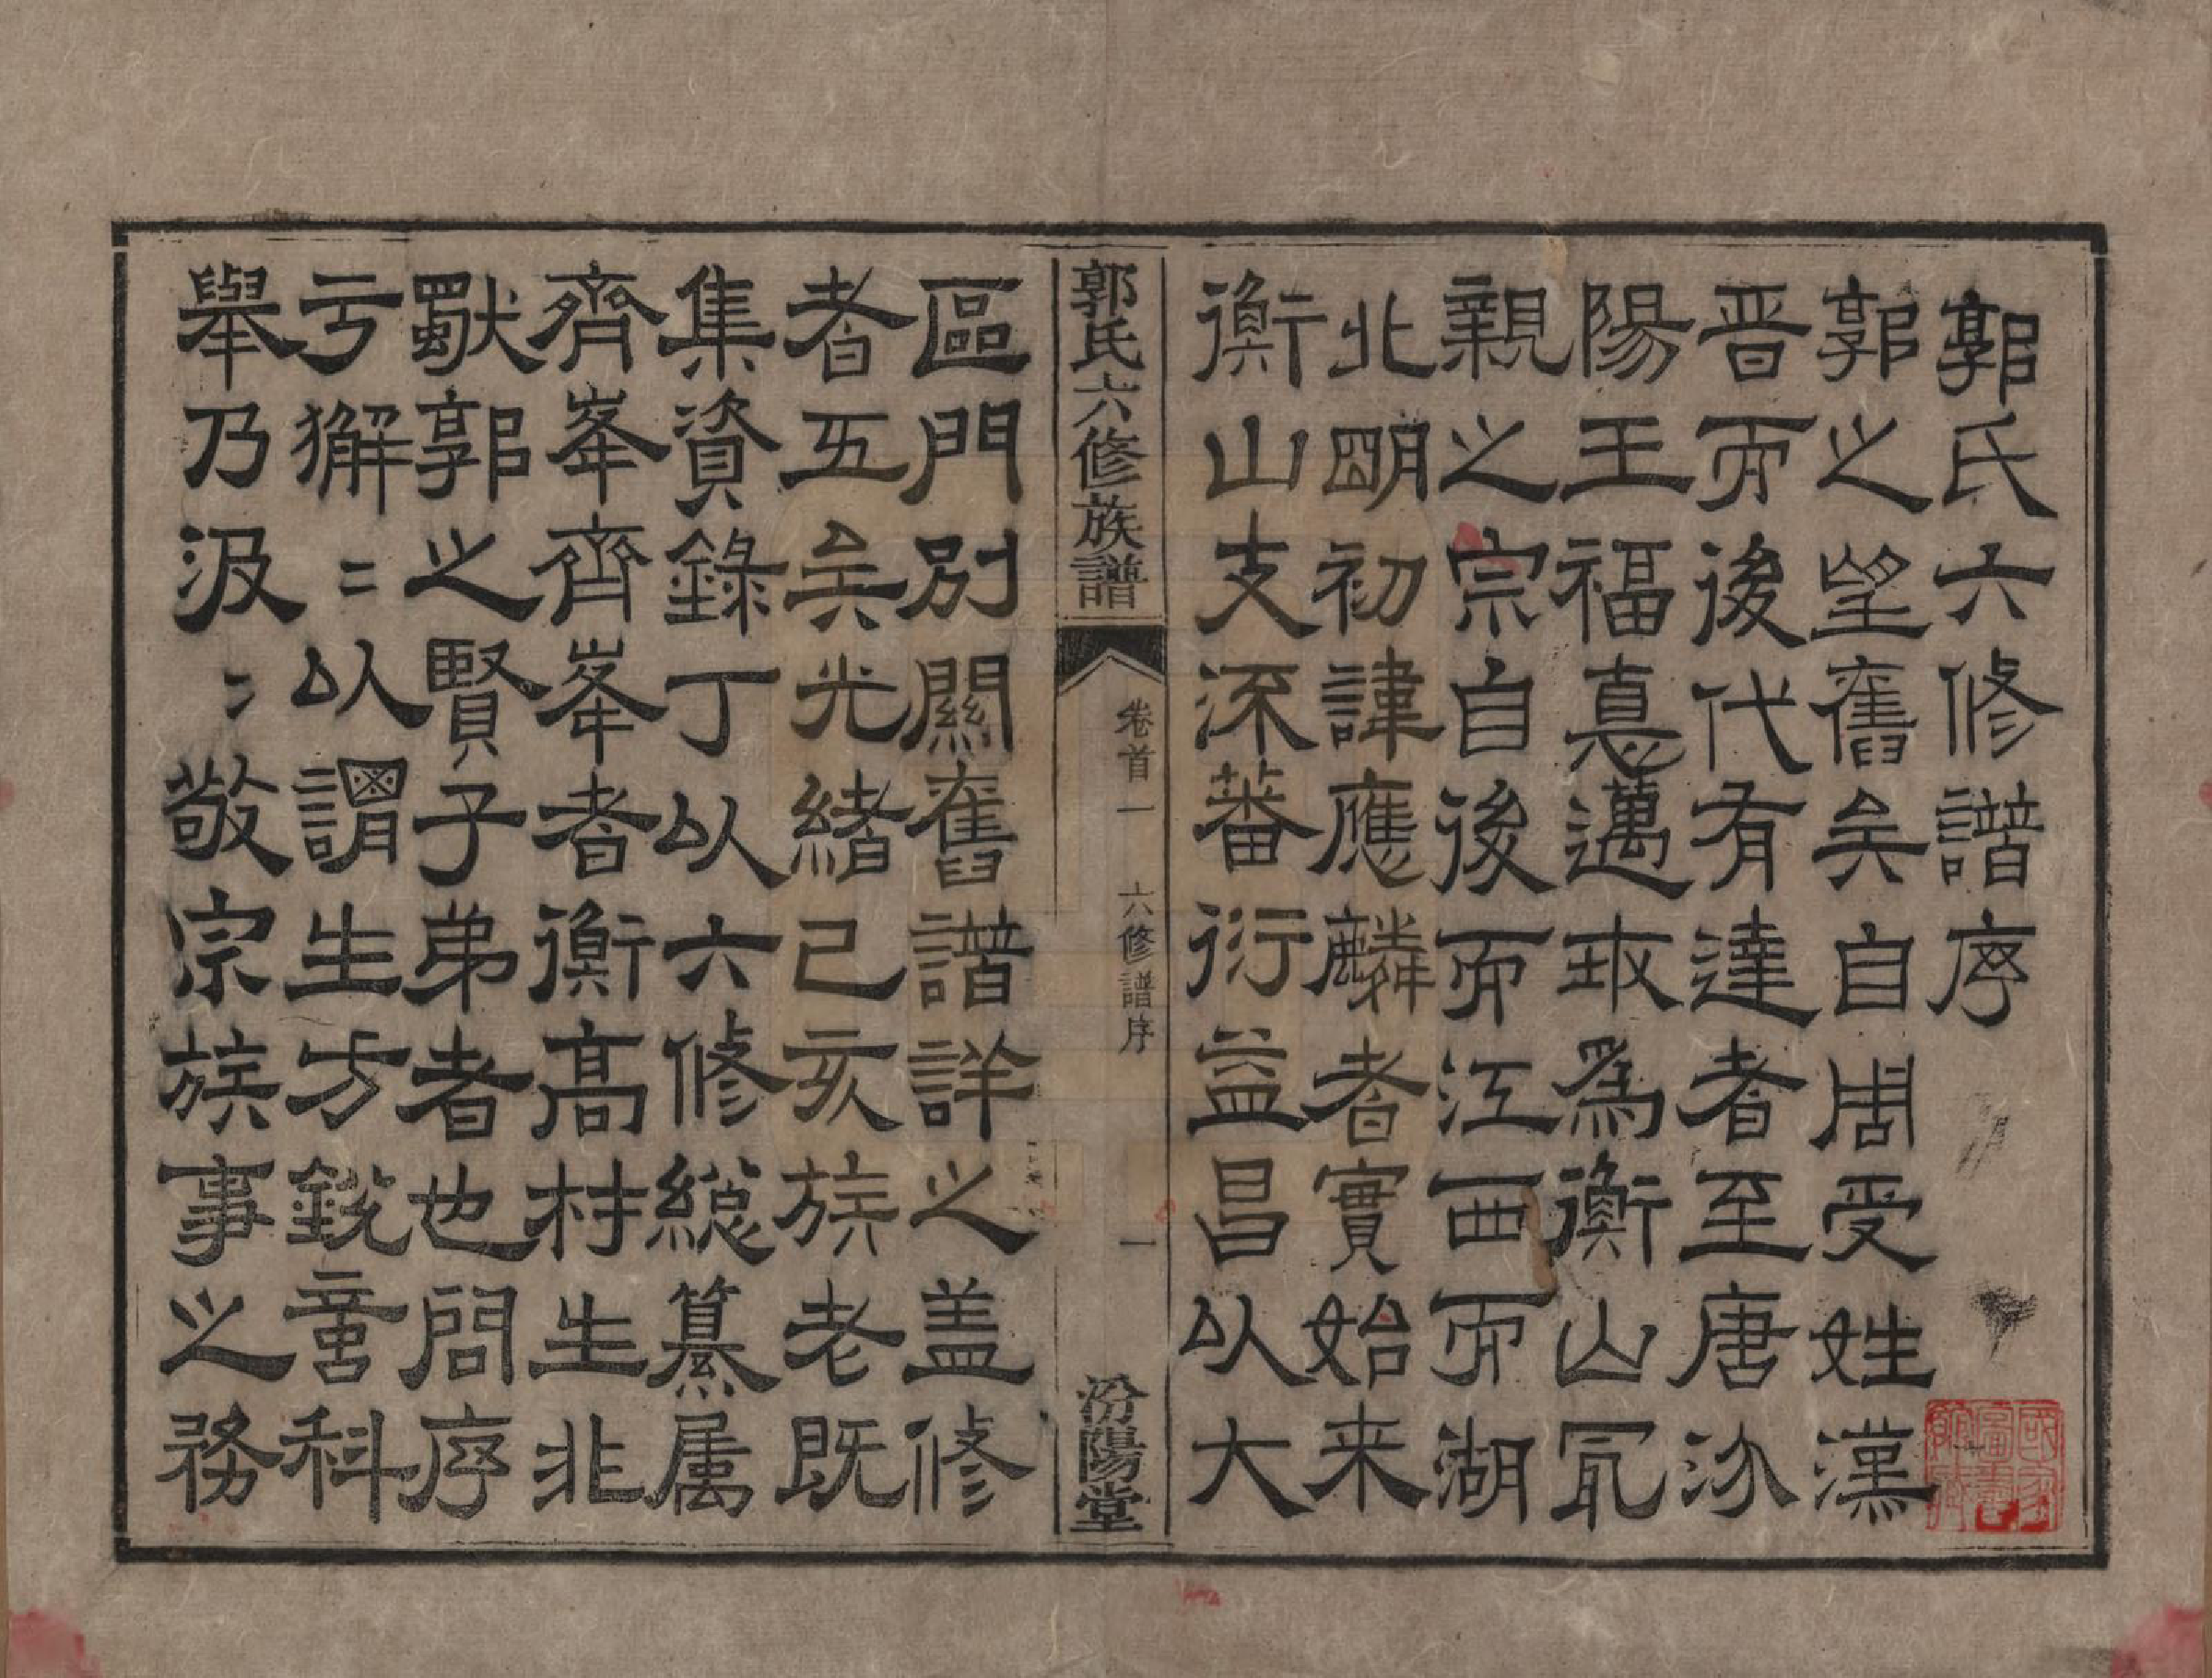 郭氏六修譜序
郭之望舊矣自周受姓漢
晋而後代有達者至唐汾
陽王福悳邁㝡為衡山冣
親之宗自後而江西而湖
北明初諱應麟者實始来
衡山支派蕃衍益昌以大
郭氏六修族譜
卷首一 六修譜序
一
汾陽堂
區門別關舊譜詳之盖修
者五矣光緒己亥族老既
集資錄丁以六修緫纂属
齊峯齊峯者衡高材生非
獸郭之賢子弟者也問序
亏獬二以謂生方銳啻科
舉乃汲二敬宗族事之務
國家
圖書
館藏